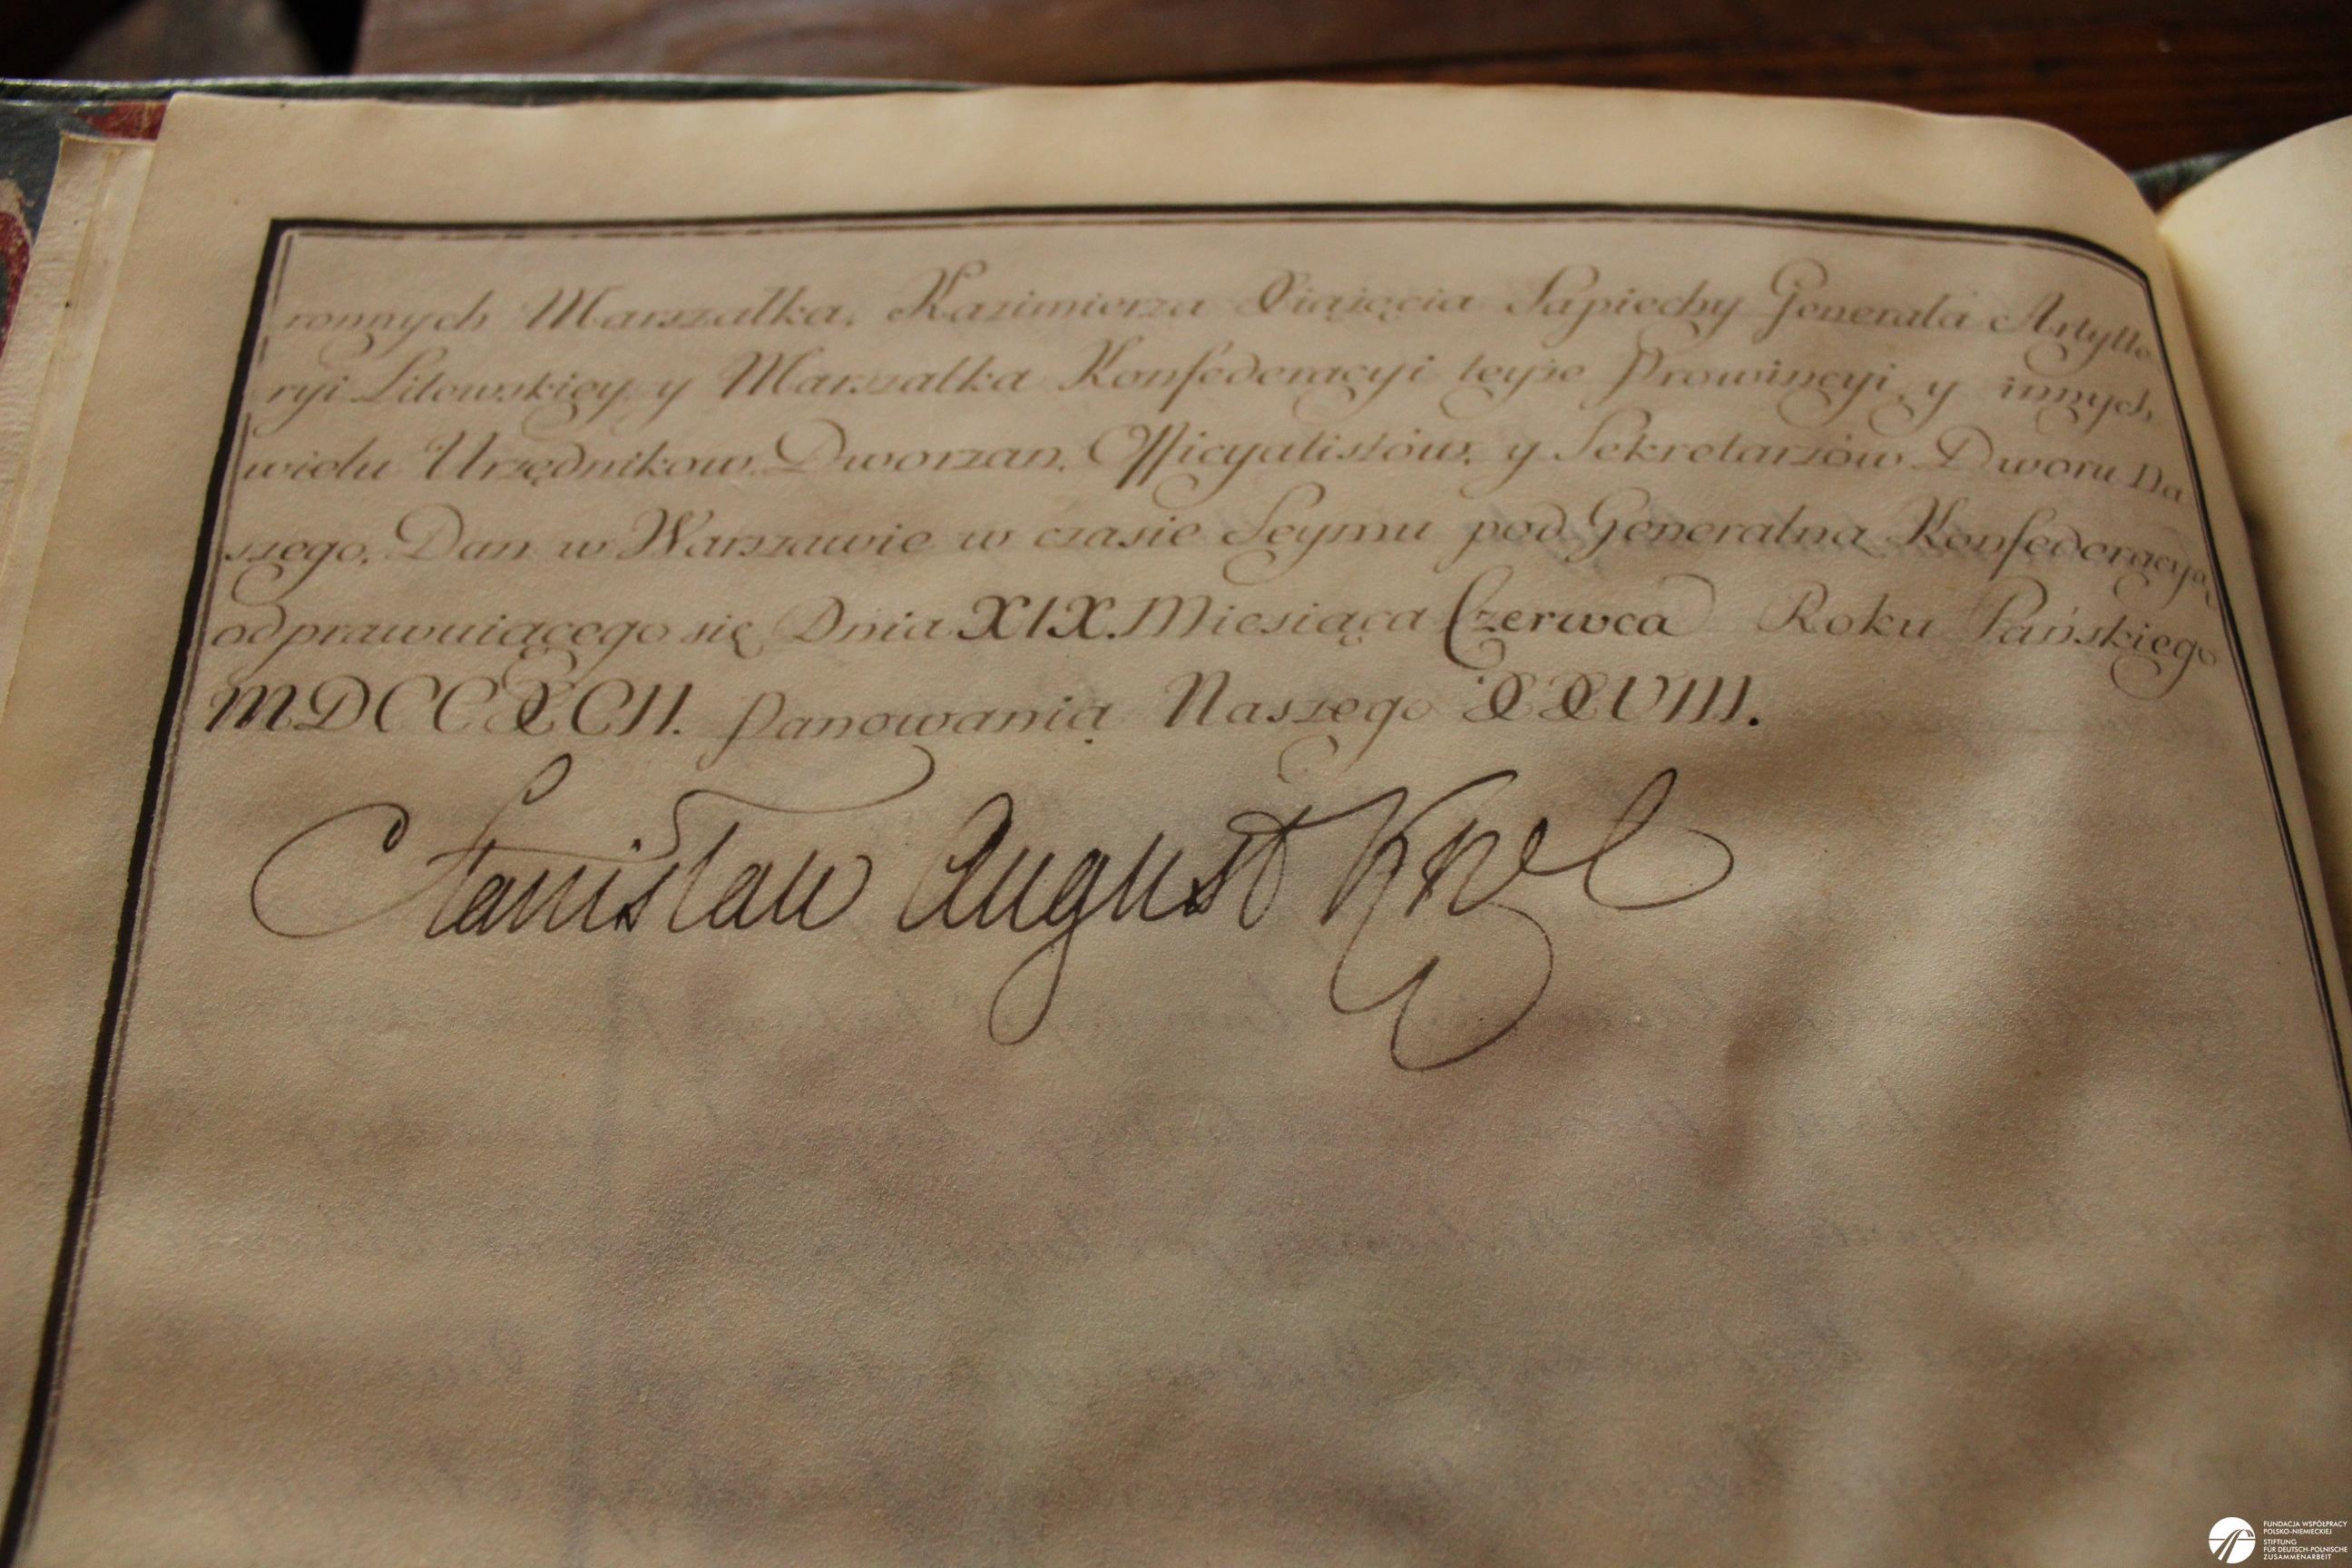 ronnych Marszałka, Kazimierza Xiążęcia Sapiechy Generała Artylle
ryi Litewskiey y Marszałka Konfederacyi teyże Prowincyi, y innych
wielu Urzędnikow, Dworzan, Officyalistów, y Sekretarzów Dworu Na
szego. Dan w Warszawie w czasie Seymu pod Generalną Konfederacyą
odprawuiącego się, Dnia XIX. Miesiąca Czerwca Roku Pańskiego
MDCCXCII. Panowania Naszego XXVIII.
Stanisław August Krol
FUNDACJA WSPÓŁPRACY
POLSKO-NIEMIECKIEJ
STIFTUNG
FÜR DEUTSCH-POLNISCHE
ZUSAMMENARBEIT